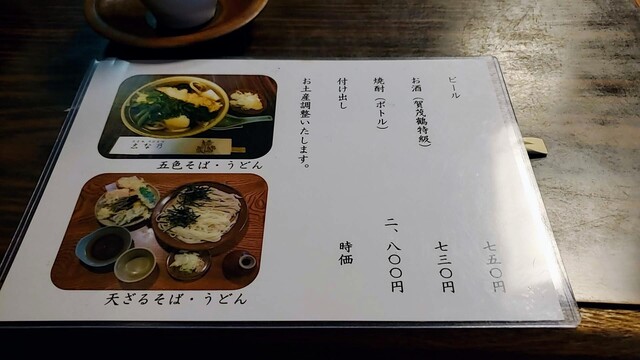 ビール 七五〇円
お酒(賀茂鶴特級) 七三〇円
焼酎(ボトル) 二、八〇〇円
付け出し 時価
お土産調整いたします。
五色そば・うどん
天ざるそば・うどん